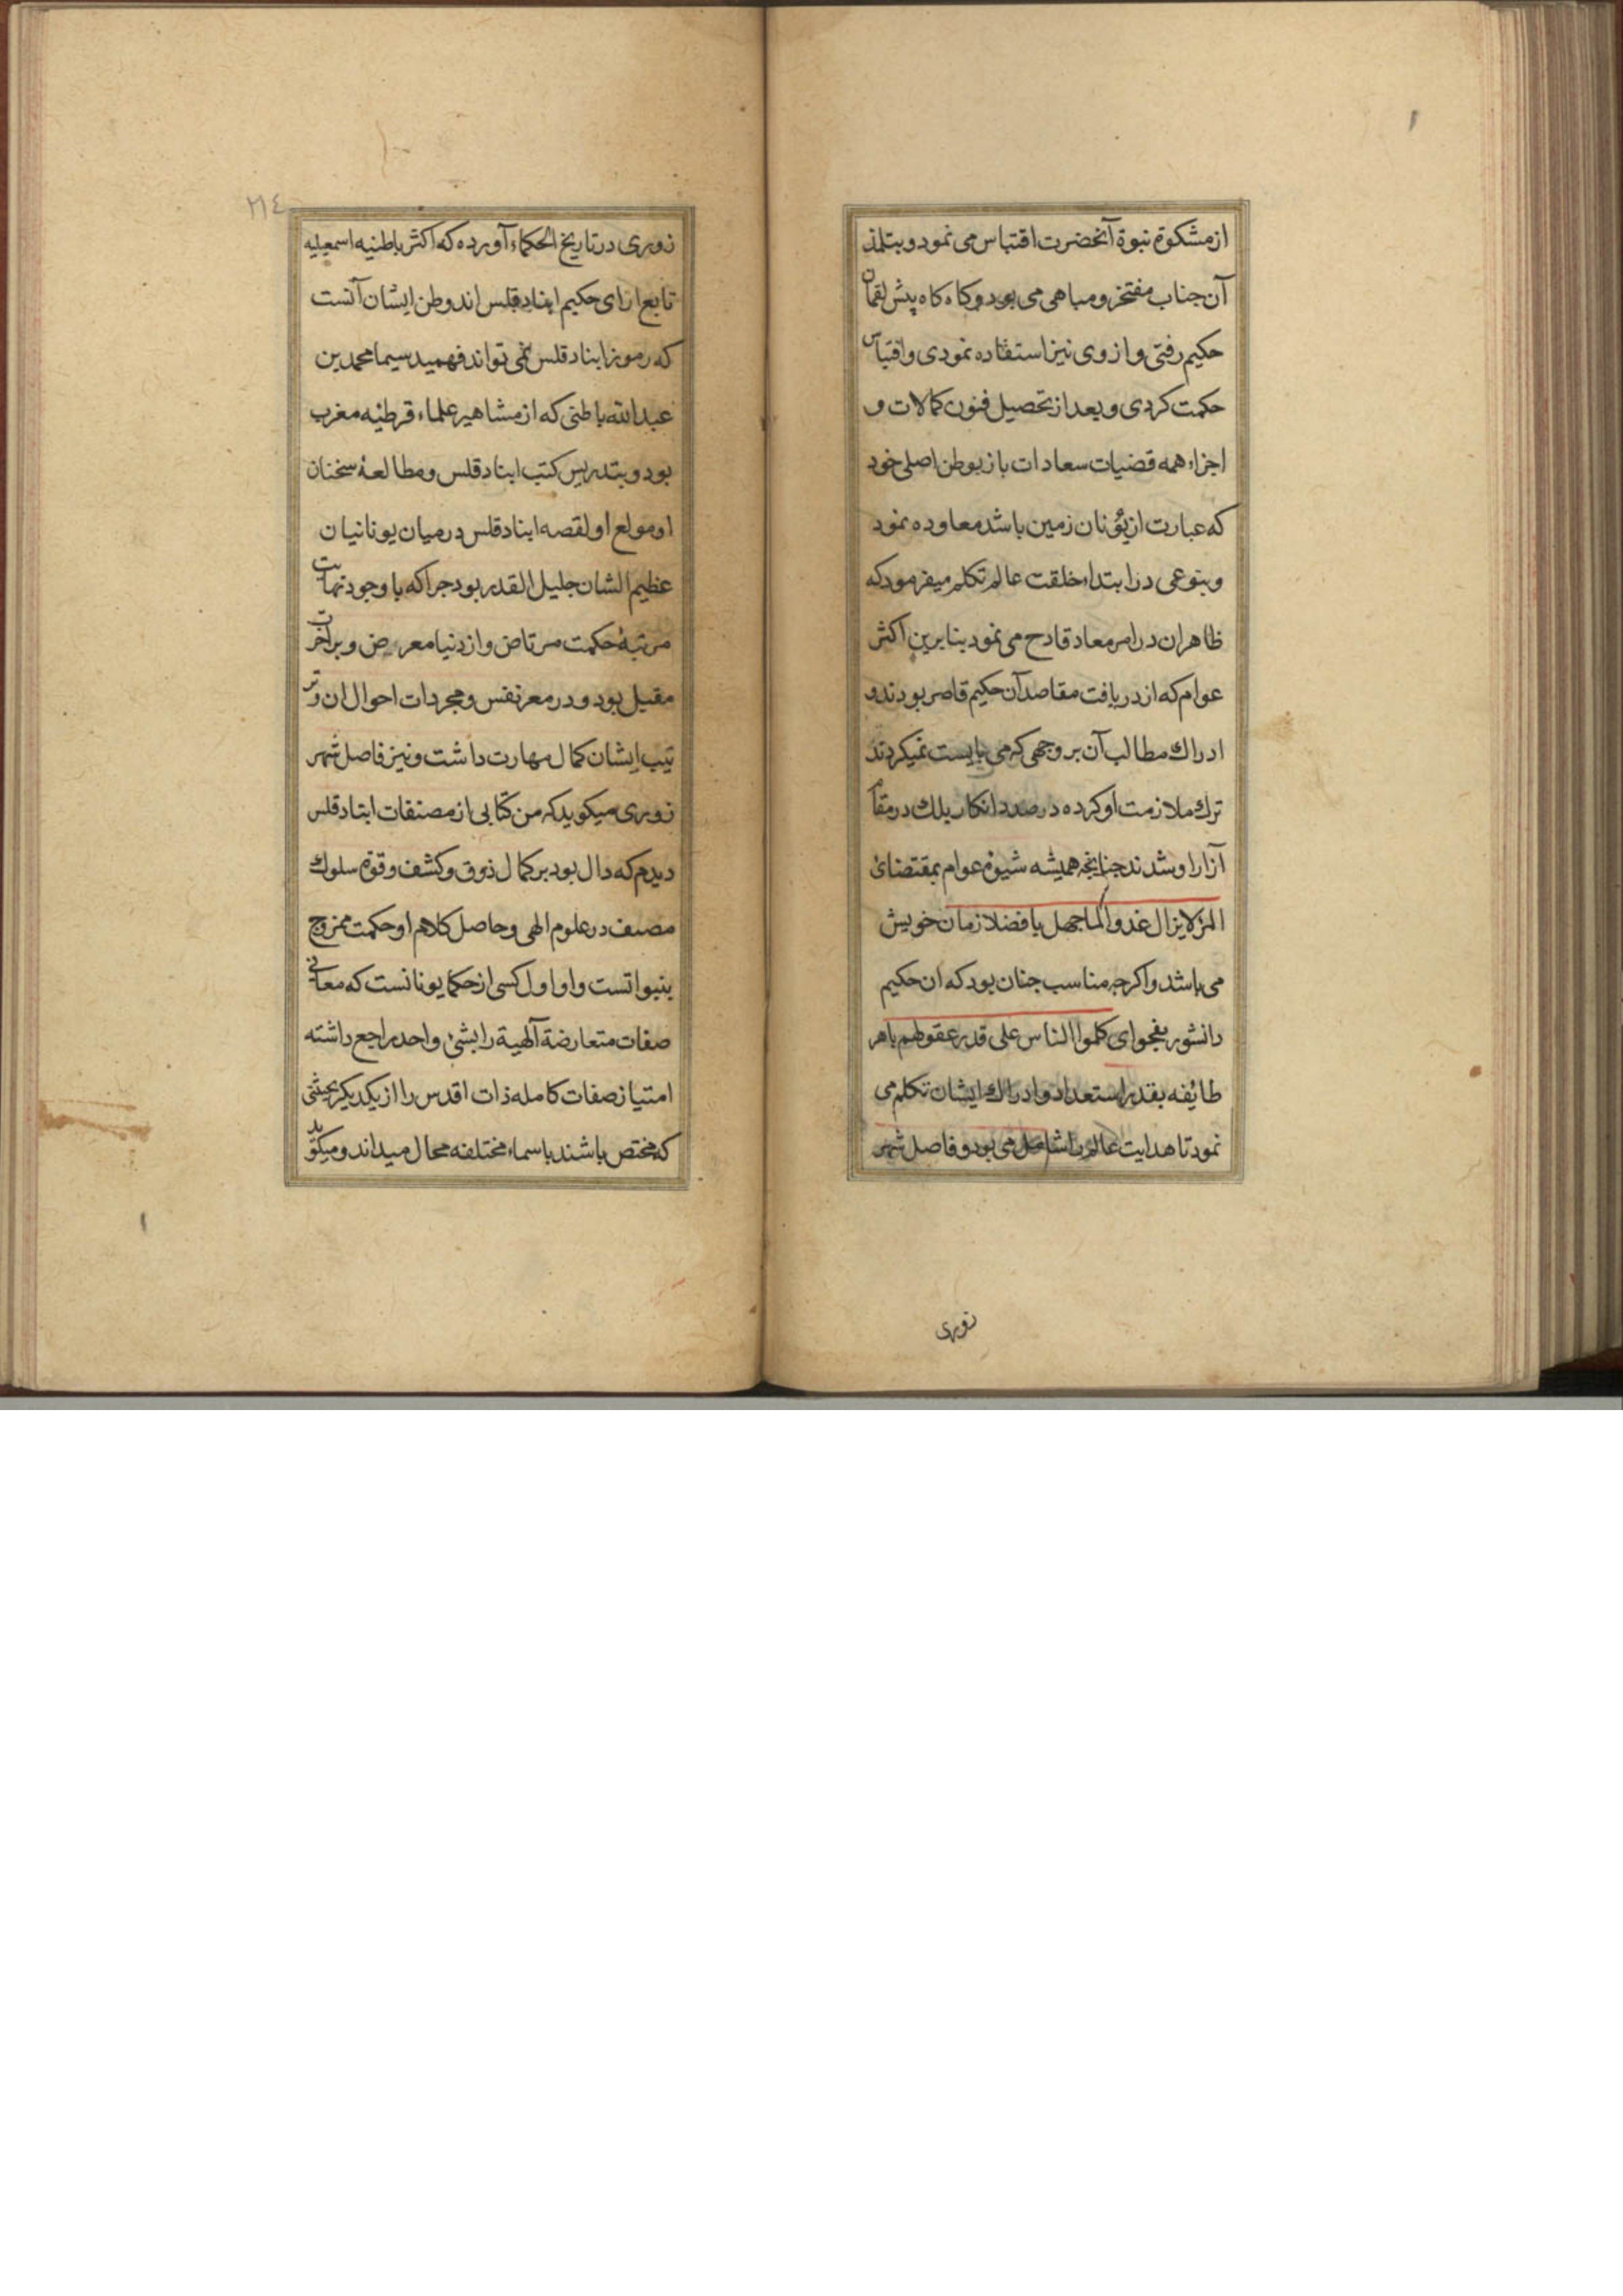 از مشکوة نبوة آنحضرت اقتباس می نمود و بتلمذ
آن جناب مفتخر و مباهی می بود و کاه کاه پیش لقمان
حکیم رفتی و از وی نیز استفاده نمودی و اقتباس
حکمت کردی و بعد از تحصیل فنون کمالات و
اجزاء همه قضیات سعادات باز بوطن اصلی خود
که عبارت از یؤنان زمین باشد معاوده نمود
و بنوعی در ابتداء خلقت عالم تکلم میفرمود که
ظاهر ان در امر معاد قادح می نمود بنابرین اکثر
عوام که از دریافت مقاصد آن حکیم قاصر بودند و
ادراك مطالب آن بر وجهی که می بایست نمیکردند
ترك ملازمت او کرده در صدد انکار بلك در مقام
آزار او شدند جنانجه همیشه شیوۀ عوام بمقتضائ
المرٔ لایزال عدوا لما جهل با فضلا زمان خویش
می باشد و اکرجه مناسب جنان بود که ان حکیم
دانشور بفحوای کلموا الناس علی قدر عقولهم باهر
طائفه بقدر استعداد و ادراك ایشان تکلم می
نمود تا هدایت عالم را شامل می بود و فاصل شهر
زوری
٢١٤
زوری در تاریخ الحکماء آورده که اکثر باطنیه اسمعیلیه
تابع ارای حکیم ابنادقلس اند وطن ایشان آنست
که رموز ابنادقلس نمی تواند فهمید سیما محمد بن
عبد الله باطنی که از مشاهیر علماء قرطنه مغرب
بود و بتدریس کتب ابنادقلس و مطالعۀ سخنان
او مولع او لقصه ابنادقلس درمیان یونانیان
عظیم الشان جلیل القدر بود جرا که با وجود نهایت
مرتبۀ حکمت مرتاض و از دنیا معرض و بر آخرت
مقبل بود و در معر نفس و مجردات احوال ان و تر
تیب ایشان کمال مهارت داشت و نیز فاصل شهر
زوری میکوید که من کتابی از مصنفات ابنادقلس
دیدم که دال بود بر کمال ذوق و کشف و قوۀ سلوك
مصنف در علوم الهی و حاصل کلام او حکمت ممزوج
بنبواتست و او اول کسی از حکما یونانست که معانی
صفات متعارضة آلهیة را بشئ واحد راجع داشته
امتیاز صفات کامله ذات اقدس را از یکدیکر بحیثی
که مختص باشند باسماء مختلفه محال میداند و میکوید